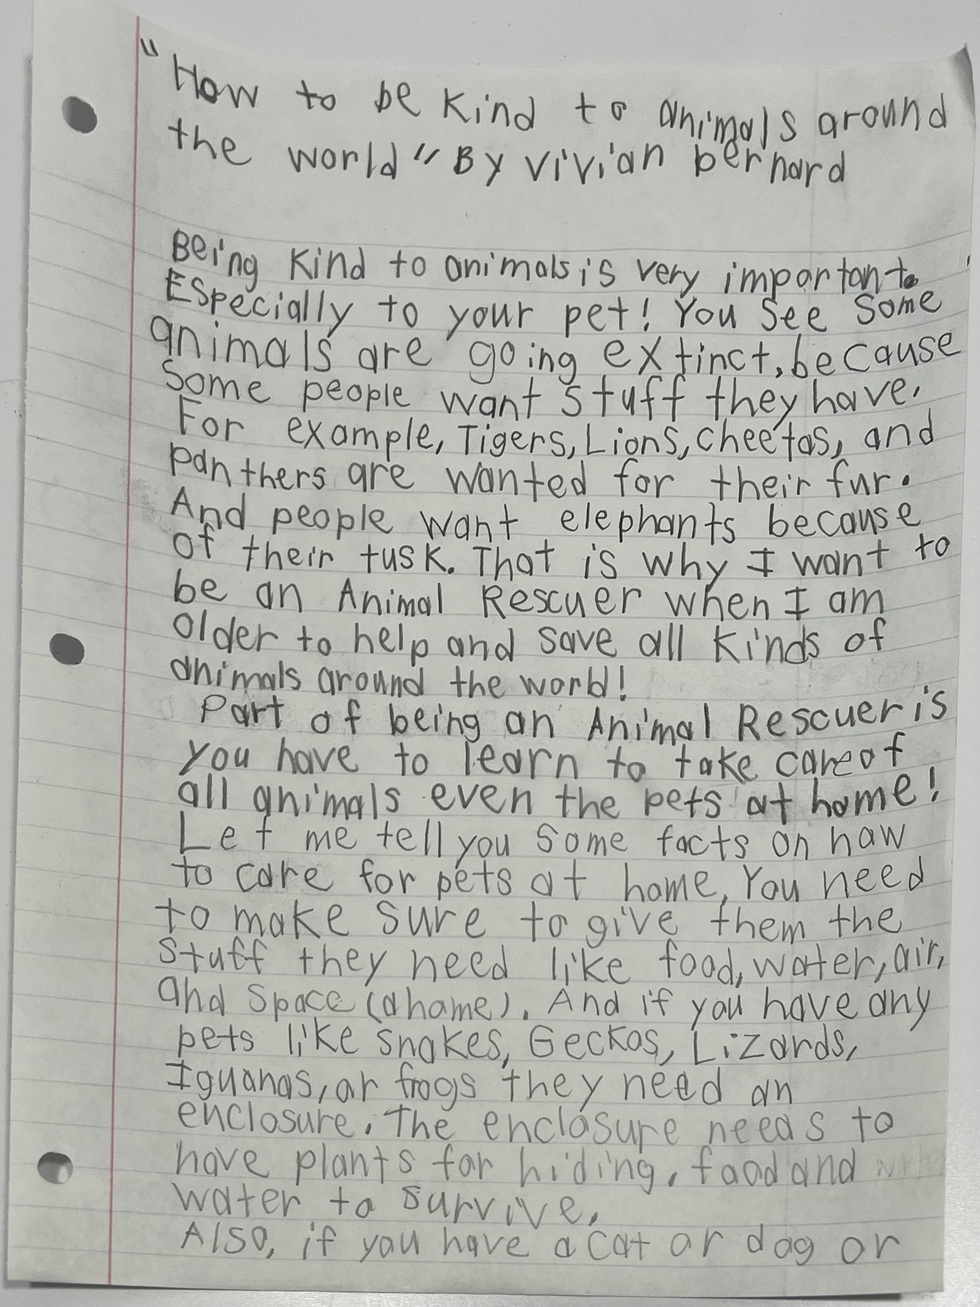 "How to be kind to animals around
the world" By Vivian bernard
Being kind to animals is very important.
Especially to your pet! You see some
animals are going extinct, because
some people want stuff they have.
For example, Tigers, Lions, cheetas, and
panthers are wanted for their fur.
And people want elephants because
of their tusk. That is why I want to
be an Animal Rescuer when I am
older to help and save all kinds of
animals around the world!
Part of being an Animal Rescuer is
you have to learn to take care of
all animals even the pets at home!
Let me tell you some facts on haw
to care for pets at home, You need
to make sure to give them the
stuff they need like food, water, air,
and space (a hame). And if you have any
pets like snakes, Geckos, Lizards,
Iguanas, or frogs they need an
enclosure. The enclosure needs to
have plants for hiding, food and
water to survive.
Also, if you have a cat or dog or